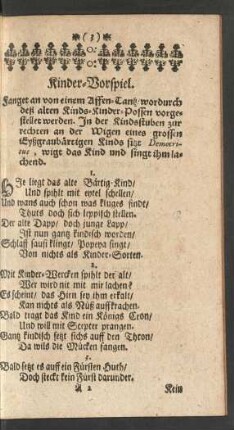 (3)
Kinder-Vorspiel.
Fanget an von einem Affen-Tantz/wordurch
deß alten Kinds-Kinder-Possen vorge-
stellet werden. In der Kindsstuben zur
rechten an der Wigen eines grossen
Eyßgraubärtigen Kinds sitzt Democri-
tus, wigt das Kind und singt ihm la-
chend.
1.
HIe liegt das alte Bärtig-Kind/
Und spihlt mit eytel schellen/
Und wans auch schon was kluges findt/
Thuts doch sich leppisch stellen.
Der alte Dapp/doch junge Lapp/
Ist nun gantz kindisch worden/
Schlaff sauß klinge/Popeya singt/
Von nichts als Kinder-Sorten.
2.
Mit Kinder-Wercken spihlt der alt/
Wer wird nit mit mir lachen?
Es scheint/das Hirn sey ihm erkalt/
Kan nichts als Nüß auffkrachen.
Bald tragt das Kind ein Königs Cron/
Und will mit Scepter prangen.
Gantz kindisch setzt sichs auff den Thron/
Da wils die Mücken fangen.
3.
Bald setzt es auff ein Fürsten-Huth/
Doch steckt kein Fürst darunder.
A 2 Kein